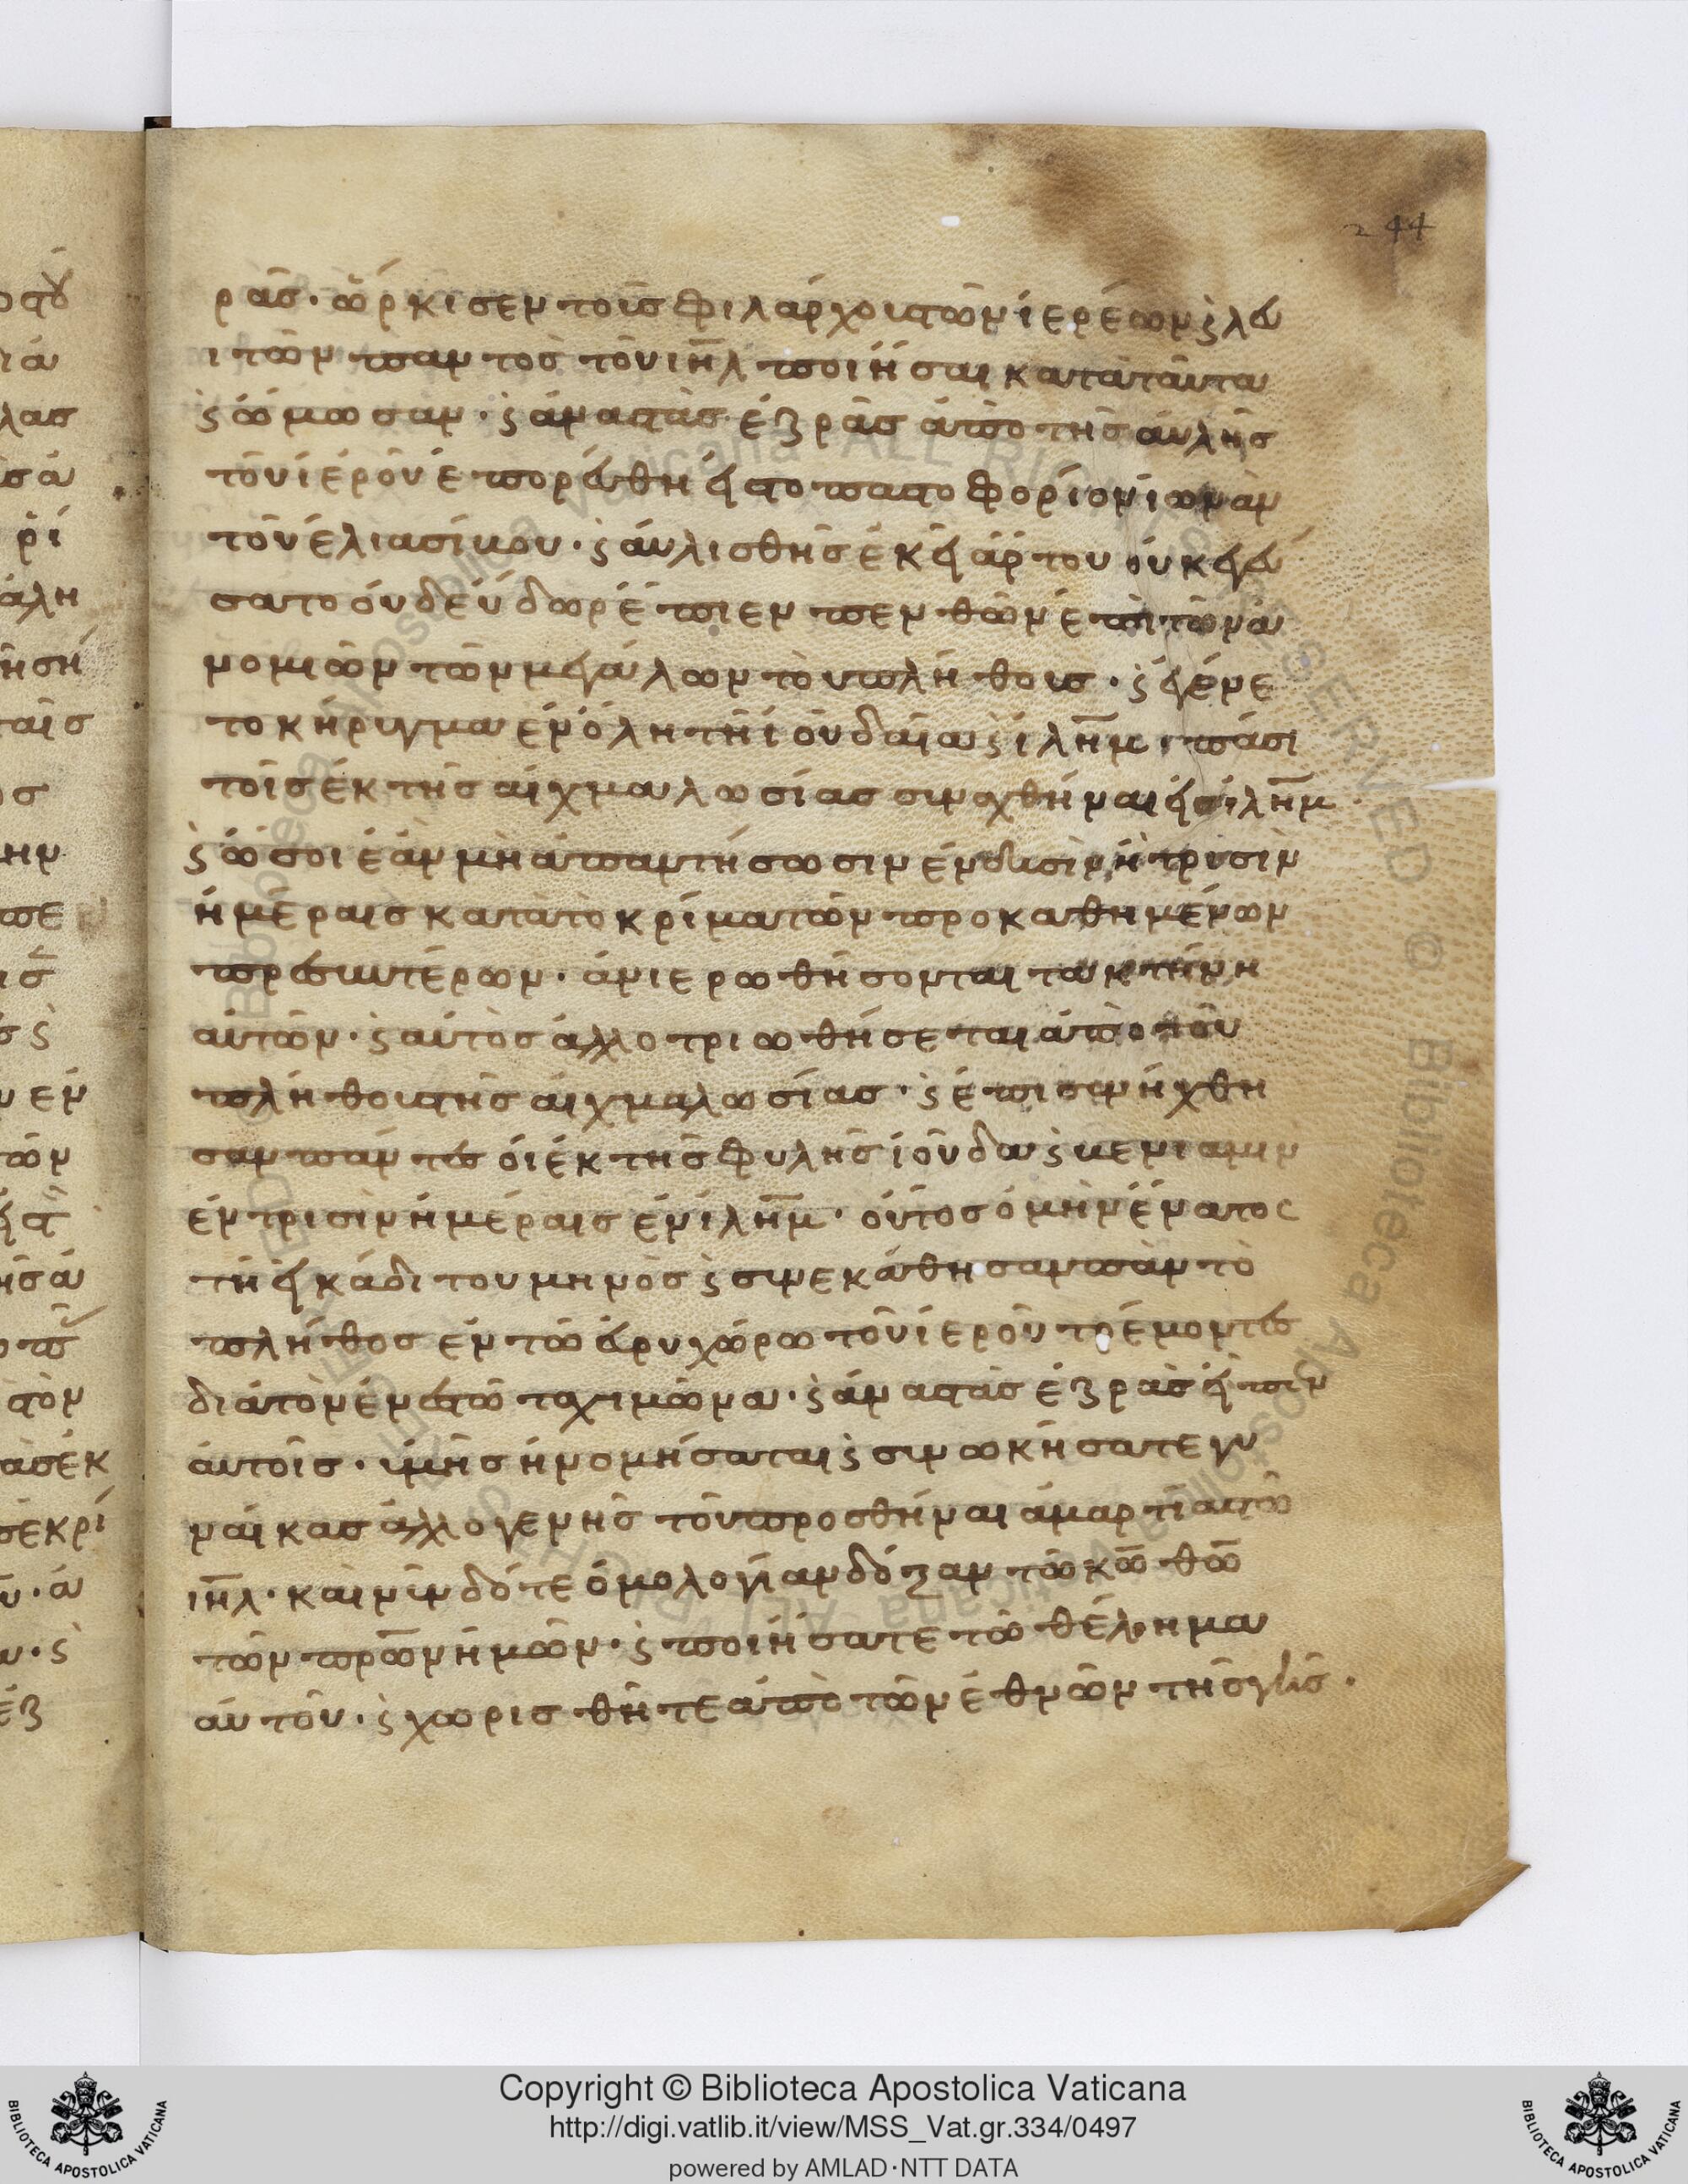 244
ρᾶσ· ὥρκισεν τοῖσ φιλάρχοις τῶν ἱερέων ϛ λευ
ιτῶν παντὸσ τοῦ ιη̅λ ποιῆσαι κατὰ ταῦτα
ϛ ὤμωσαν· ϛ ἀναστὰσ ἐζρᾶσ ἀπὸ τῆσ αὐλῆσ
τοῦ ἱεροῦ ἐπορεύθη εἰσ το παστοφόριον ἰωνὰν
τοῦ ἐλιασίβου· ϛ αὐλισθῆσ ἐκεῖ ἄρτου οὐκ ἐγεύ
σατο οὐδεὔδωρ ἔπιεν πενθῶν ἐπὶ τῶν ἀ
νομιῶν τῶν μεγάλων τοῦ πλήθους· ϛ ἐγένε
το κήρυγμα ἐν ὅλη τῆ ἰουδαία ϛ ἱλη̅μ πάσι
τοῖσ ἐκ τῆσ αἰχμαλωσίασ συναχθῆναι εἰσ ἱλη̅μ
ϛ ὥσοι ἐὰν μὴ ἀπαντήσωσιν ἐν δυσὶν ἢ τρισὶν
ἡμέραισ κατὰ τὸ κρίμα τῶν προκαθημένων
πρεσβυτέρων· ἀνιερωθήσονται τὰ κτήνη
αὐτῶν· ϛ αὐτὸσ ἀλλοτριωθήσεται ἀπὸ τοῦ
πλήθους τῆσ αἰχμαλωσίασ· ϛ ἐπισυνήχθη
σαν πάντεσ οἱ ἐκ τῆσ φυλῆσ ἰούδα ϛ βενιαμιν
ἐν τρισὶν ἡμέραισ ἐν ἱλη̅μ· οὗτοσ ὁ μὴν ἔνατος
τῆ εἰκάδι του μηνὸσ ϛ συνεκάθησαν πὰν τὸ
πλῆθοσ ἐν τῶ εὐρυχώρω τοῦ ἱεροῦ τρέμοντεσ
διὰ τὸν ἐνεστῶτα χειμῶνα· ϛ ἀναστὰσ ἐζρὰσ εἶπεν
αὐτοῖσ· ὑμῆσ ἠνομήσαται ϛ συνωκήσατε γυ
ναίκασ ἀλλογενῆσ τοῦ προσθῆναι ἁμαρτίας τῶ
ιη̅λ· καὶ νῦν δότε ὁμολογίαν δόξαν τῶ κω̅ θω̅
τῶν πρω̅ν ἡμῶν· ϛ ποιήσατε τῶ θέλημα
αὐτοῦ· ϛ χωρισθῆτε ἀπὸ τῶν ἐθνῶν τῆσ γῆσ·
Copyright © Biblioteca Apostolica Vaticana
http://digi.vatlib.it/view/MSS_Vat.gr.334/0497
powered by AMLAD·NTT DATA
BIBLIOTECA APOSTOLICA VATICANA
BIBLIOTECA APOSTOLICA VATICANA